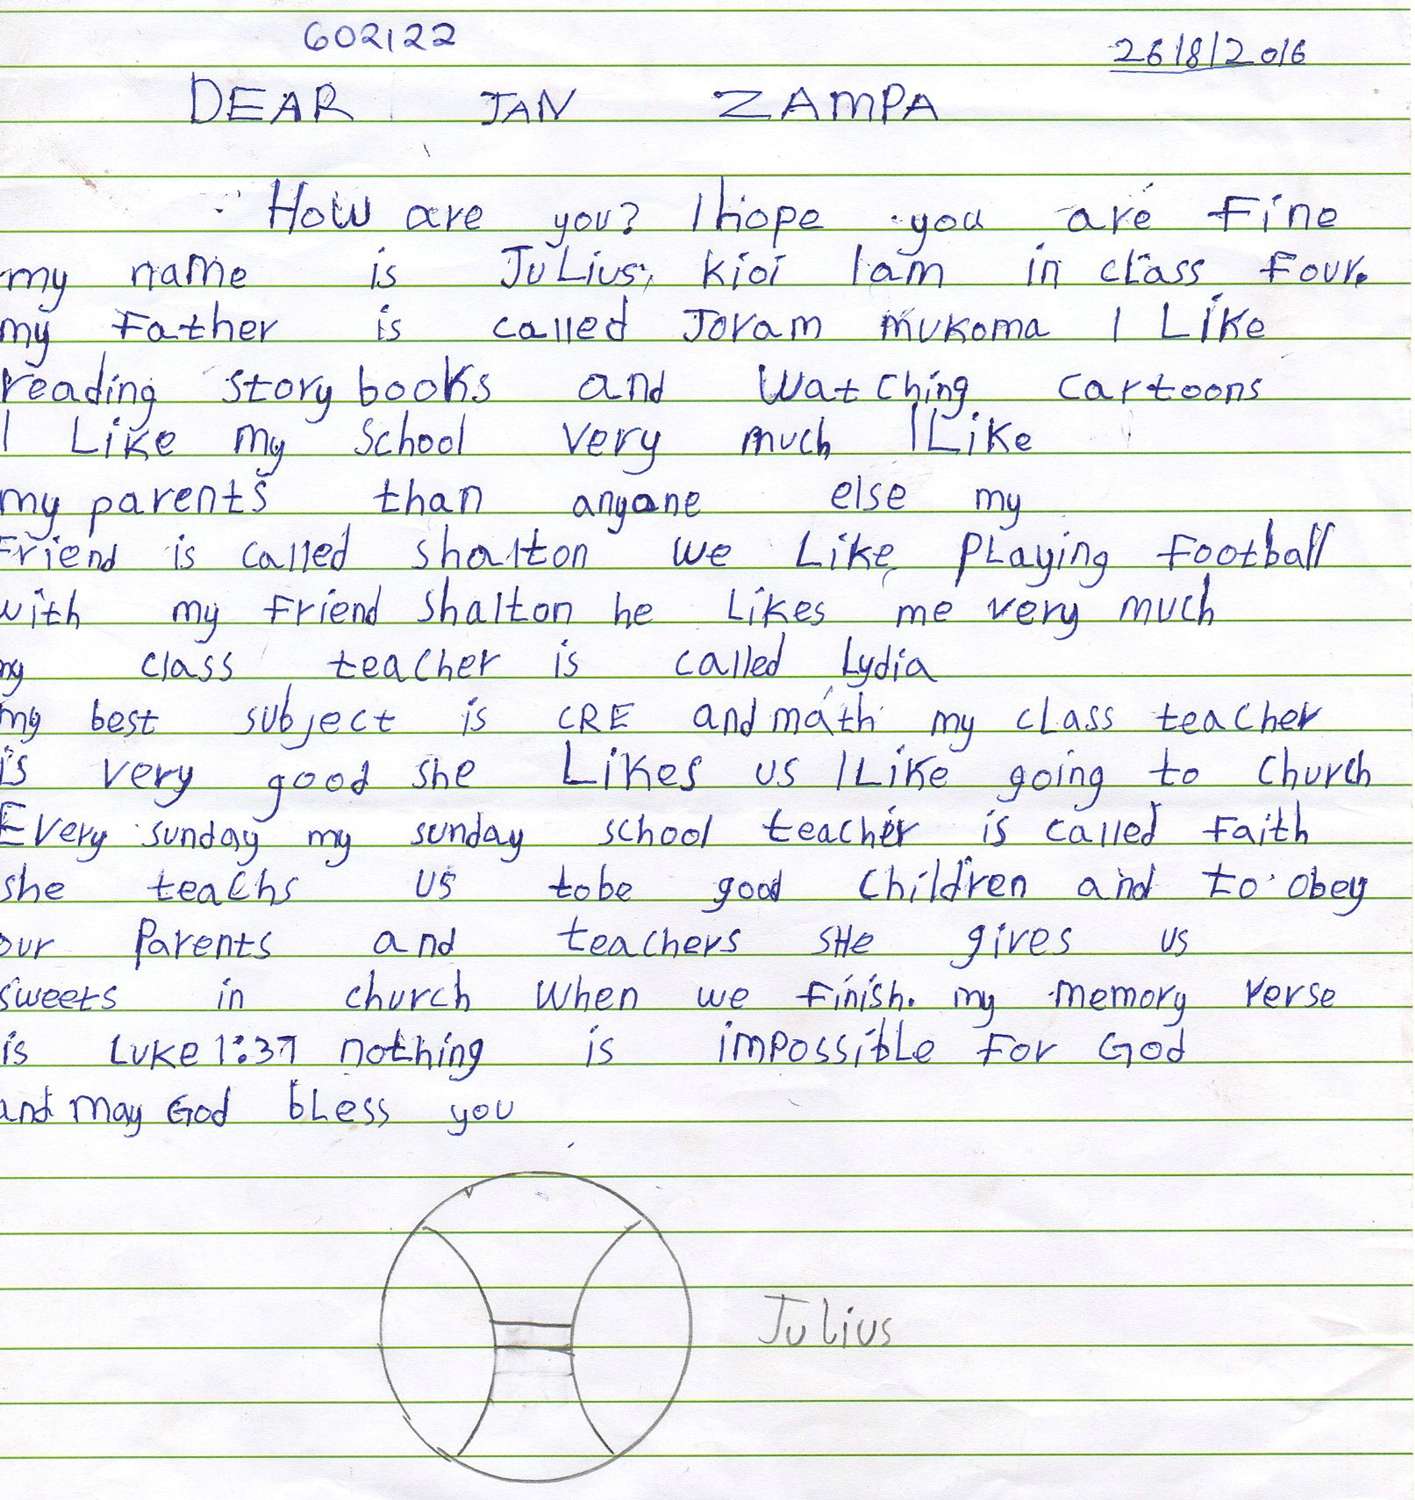 602122
26/8/2016
DEAR JAN ZAMPA
How are you? I hope you are Fine
my name is Julius, Kioi I am in class Four.
my Father is called Joram mukoma I Like
reading story books and watching cartoons
I Like my school very much I Like
my parents than anyone else my
Friend is called shalton we Like Playing Football
with my Friend shalton he Likes me very much
my class teacher is called Lydia
my best subject is CRE and math my class teacher
is very good she Likes us I Like going to church
Every sunday my sunday school teacher is called Faith
she teachs us tobe good children and to obey
our Parents and teachers SHe gives us
sweets in church when we Finish. my memory verse
is Luke 1:37 nothing is impossible For God
and may God bless you
Julius